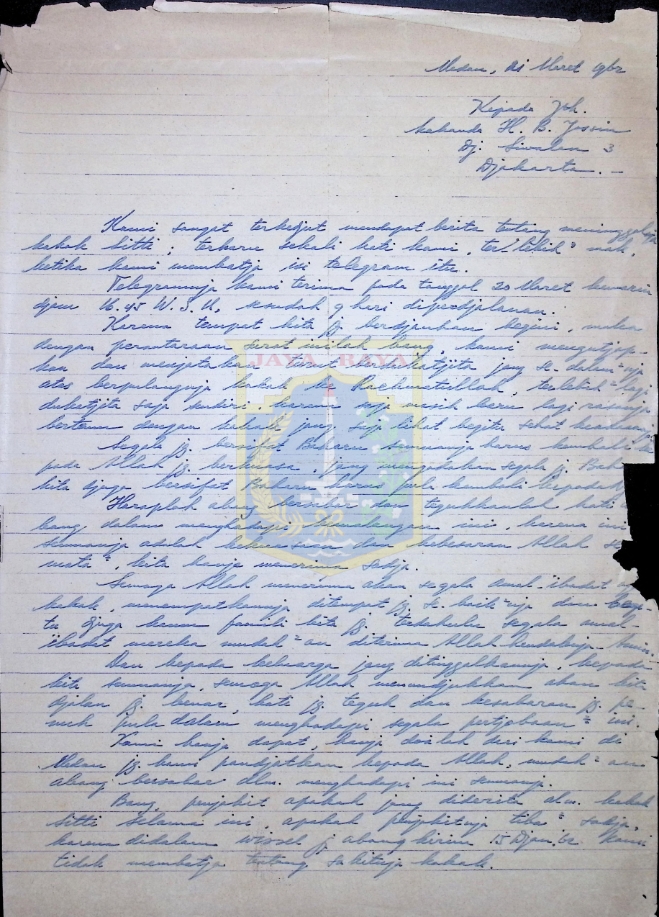 Medan, 21 Maret 1962
Kepada Jth.
kakanda H. B. Jassin
Dj. Siwalan 3
Djakarta. –
Kami sangat terkedjut mendapat berita tentang meninggalnja
kakak Sitti; terharu sekali hati kami, ter/lebih² mak,
ketika kami membatja isi telegram itu.
Telegramnja kami terima pada tanggal 20 Maret kemarin
djam 16.45 W.S.U, sesudah 9 hari diperdjalanan.
Karena tempat kita jg berdjauhan begini, maka
dengan perantaraan surat inilah bang kami mengutjap-
kan dan menjatakan turut berdukatjita jang se-dalam²nja
atas berpulangnja kakak ke Rachmatullah, terlebih² lagi
dukatjita saja sendiri, karena masih baru lagi rasanja
bertemu dengan kakak jang saja lihat begitu sehat
JAYA RAYA
Segala jg. harus kembali
pada Allah jg berkuasa, jang mengadakan segala jg. Baharu
kita djuga bersifat Baharu harus kembali kepadanja
Haraplah abang bersabar teguhkanlah hati
bang dalam menghadapi ini, karena ini
semuanja adalah dan kebesaran Allah se-
mata², kita hanja menerima sadja.
Semoga Allah menerima akan segala amal ibadat
kakak, menempatkannja ditempat jg se-baik²nja dan begi-
tu djuga kaum famili kita jg. terdahulu segala amal
ibadat mereka mudah²an diterima Allah hendaknja. Amin.
Dan kepada keluarga jang ditinggalkannja, kepada
kita semuanja, semoga Allah menundjukkan akan kita
djalan jg. benar, hati jg teguh dan kesabaran jg. pe-
nuh pula dalam menghadapi segala pertjobaan² ini.
Kami hanja dapat, hanja do'a lah dari kami di
Medan jg. kami pandjatkan kepada Allah, mudah²an
abang bersabar dlm. menghadapi ini semuanja.
Bang, penjakit apakah jang diderita alm. kakak
Sitti selama ini, apakah penjakitnja tiba² sadja,
karena didalam wissel jg abang kirim 15 Djan. 62 kami
tidak membatja tentang sakitnja kakak.